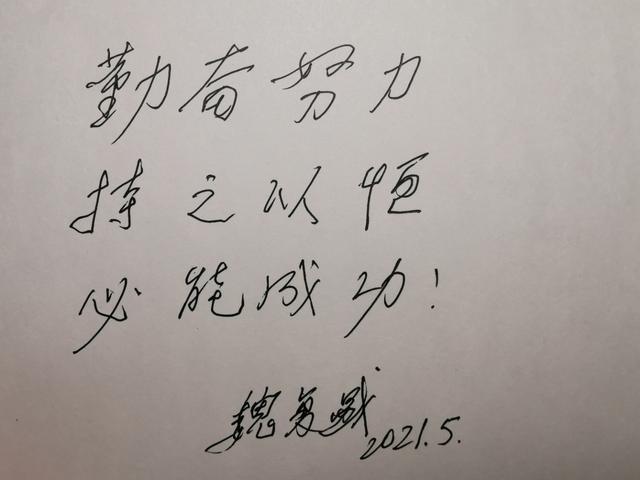 勤奋努力
持之以恒
必能成功!
魏复盛 2021.5.